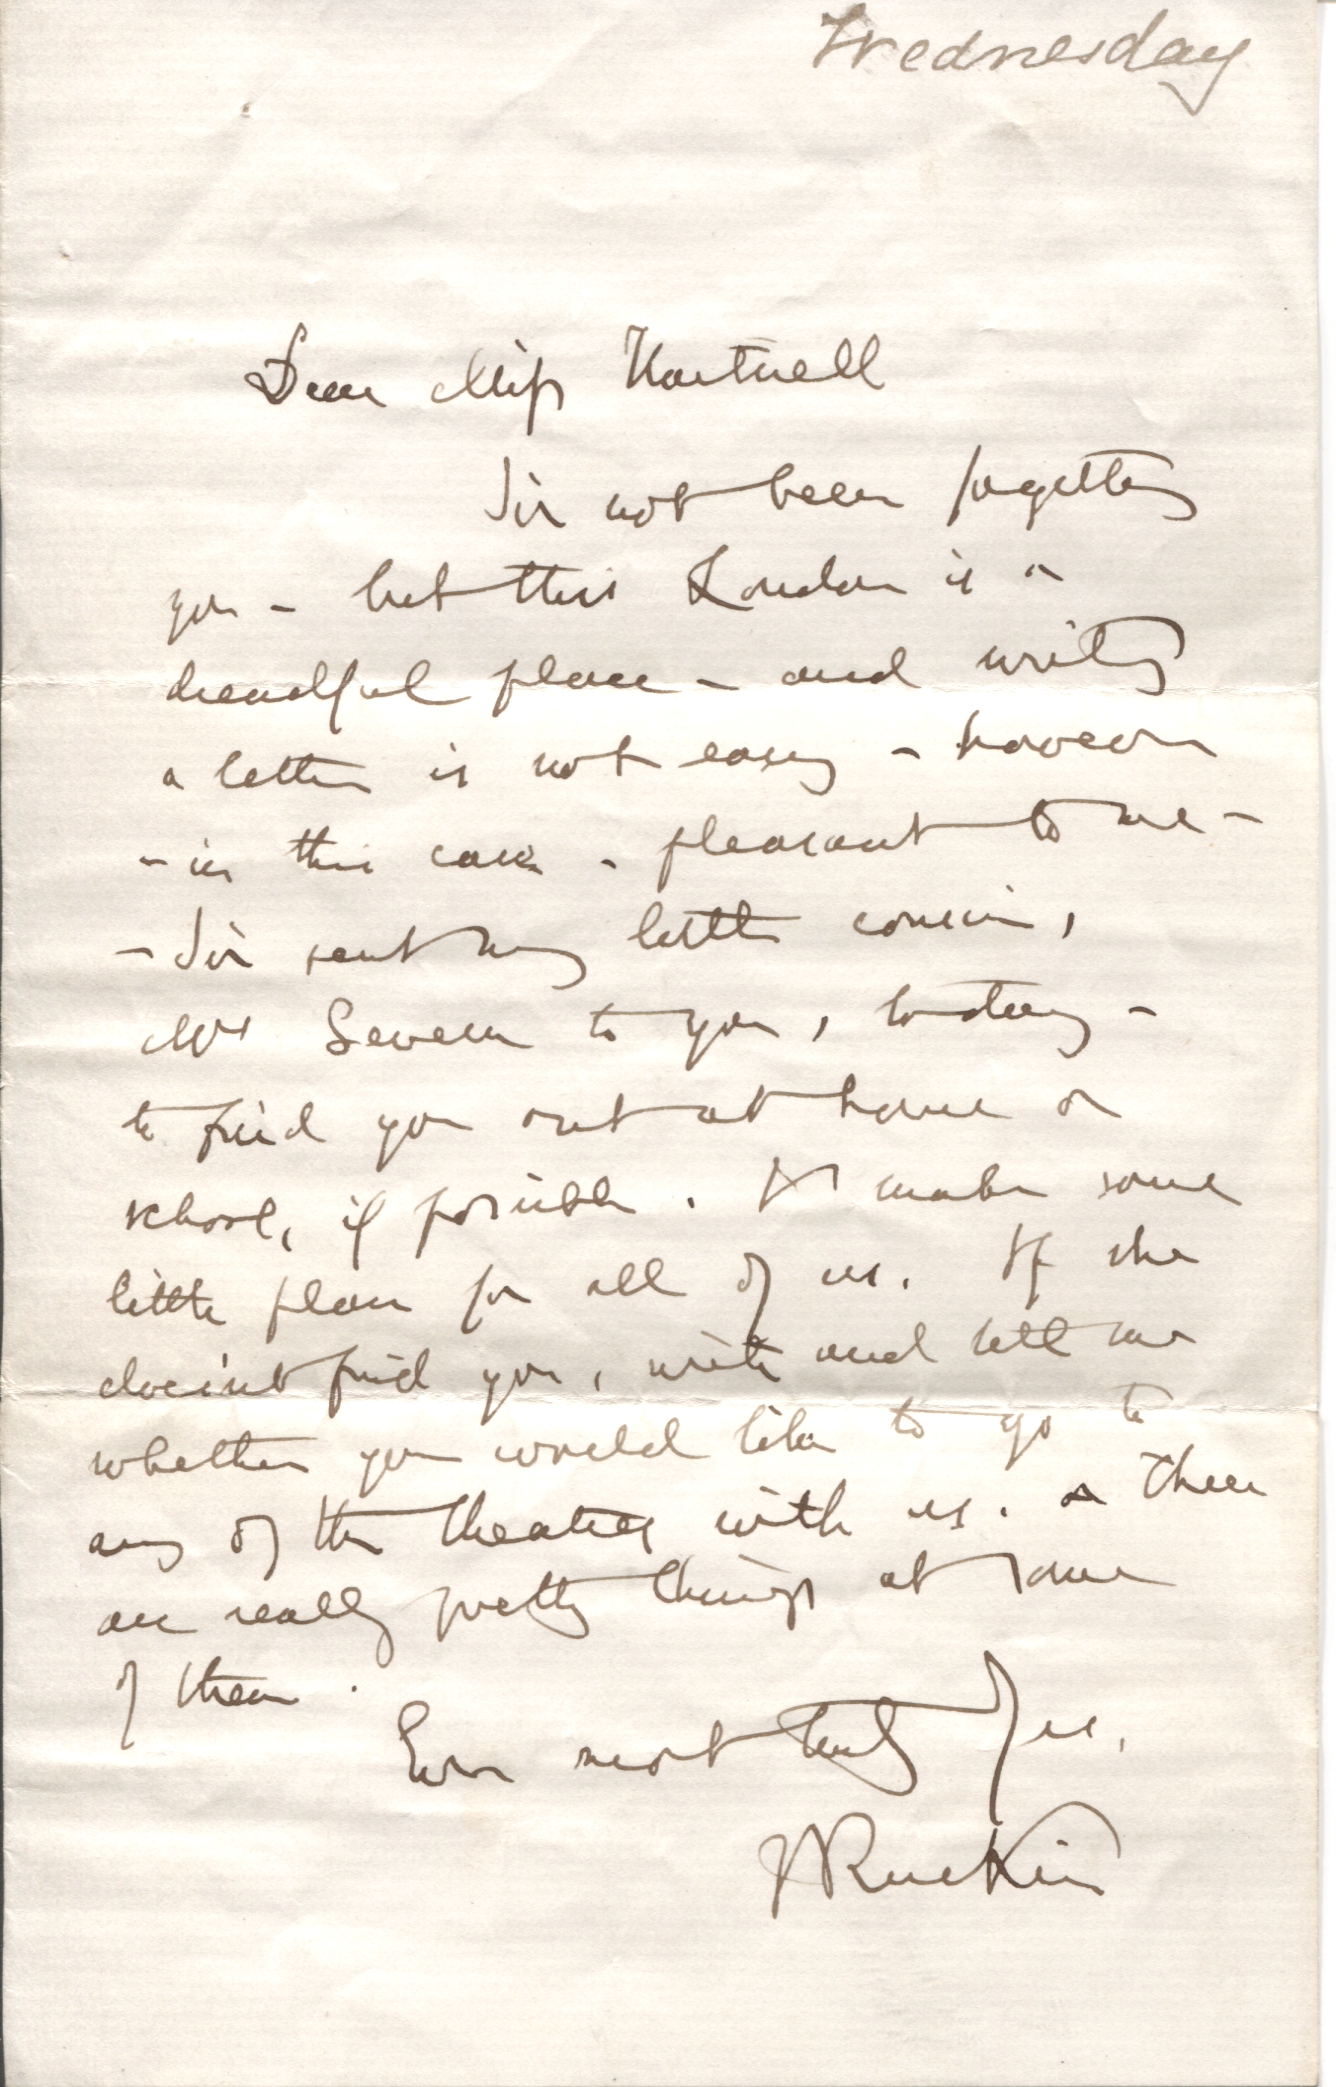 Wednesday
Dear Miss Hartnell
I've not been forgetting
you – but this London is a
dreadful place – and writing
a letter is not easy – however
– in this case – pleasant to me –
– I've sent my little cousin,
Mrs Severn to you, today –
to find you out at home or
school, if possible. & make some
little plan for all of us. If she
does'nt find you, write and tell me
whether you would like to go to
any of the theatres with us. – There
are really pretty things at some
of them.
Ever most truly Yrs,
JRuskin